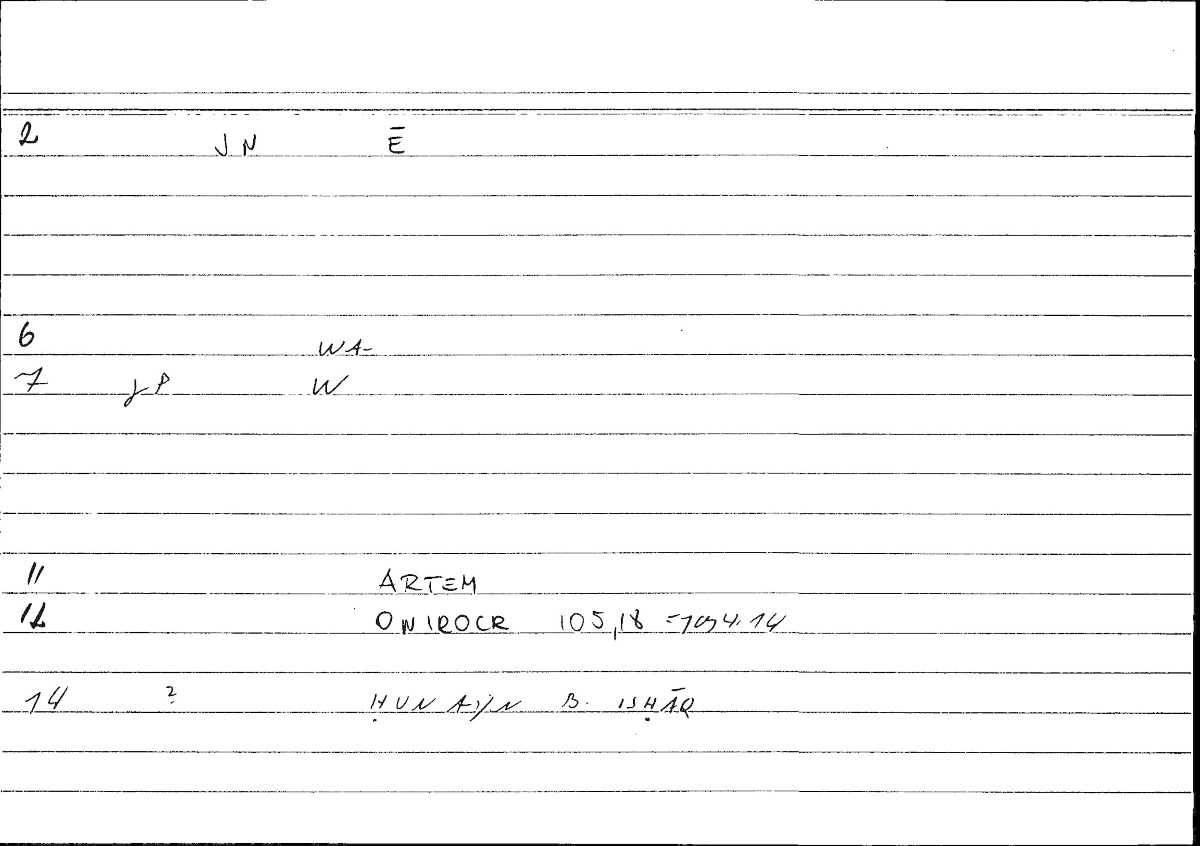 2 JN Ē
6 WA-
7 JP W
11 ARTEM
12 ONIROCR 105,18
14 ? ḤUNAIN B. ISḤĀQ